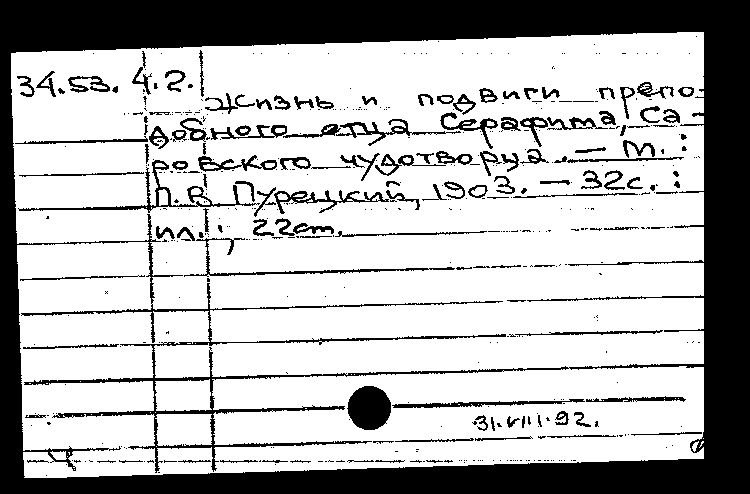 34.53.4.2.
Жизнь и подвиги препо-
добного отца Серафима, Са-
ровского чудотворца. — М. :
П.В. Пурецкий, 1903. — 32с. :
ил. ; 22cm.
31.VIII.92.